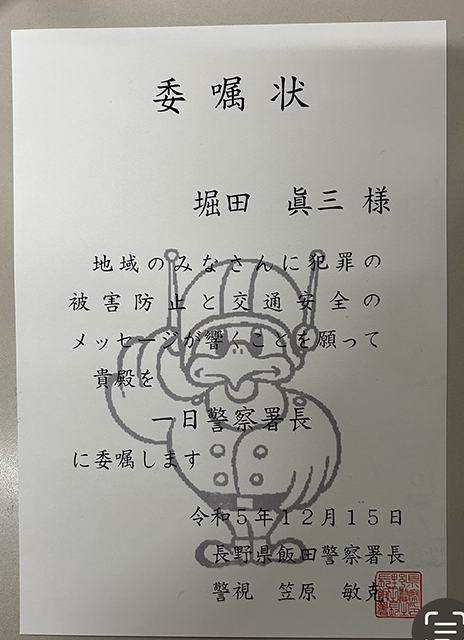 委嘱状
堀田 眞三 様
地域のみなさんに犯罪の
被害防止と交通安全の
メッセージが響くことを願って
貴殿を
一日警察署長
に委嘱します
令和5年12月15日
長野県飯田警察署長
警視 笠原 敏克